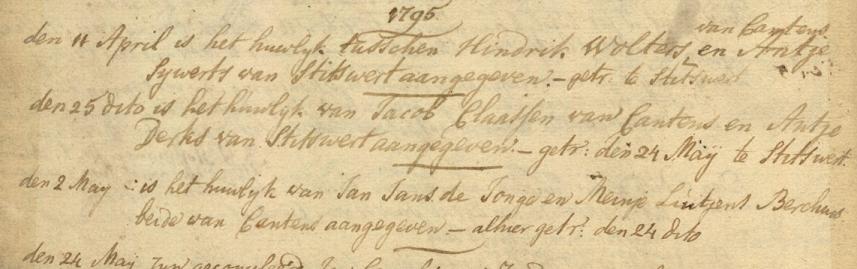 1795
van Cantens
den 11 April is het huwlyk tusschen Hindrik Wolters, en Antje
Sywerts van Stitswert aangegeven. – getr. te Stitswert
den 25 dito is het huwlyk van Jacob Claassen van Cantens en Antje
Derks van Stitswert aangegeven. – getr: den 24 Maÿ te Stitswert.
den 2 May –: is het huwlyk van Jan Jans de Jonge en Meinje Luitjens Berchuis
beide van Cantens aangegeven – alhier getr: den 24 dito
den 24 Maÿ zyn